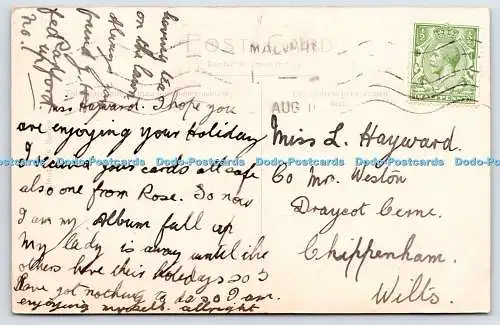 POST CARD
MALVERN
AUG
having tea
on the lawn
Always
found
fed up
no!
Miss Hayward. I hope you
are enjoying your Holiday
I received your cards all safe
also one from Rose. So now
I am my Album full up
My lady is away until the
others have their holidays so I
have got nothing to do so I am
enjoying myself allright
Miss L. Hayward.
C/o Mr. Weston
Draycot Cerne.
Chippenham.
Wilts.
Dado-Postcards Dado-Postcards Dado-Postcards Dado-Postcards Dado-Postcards